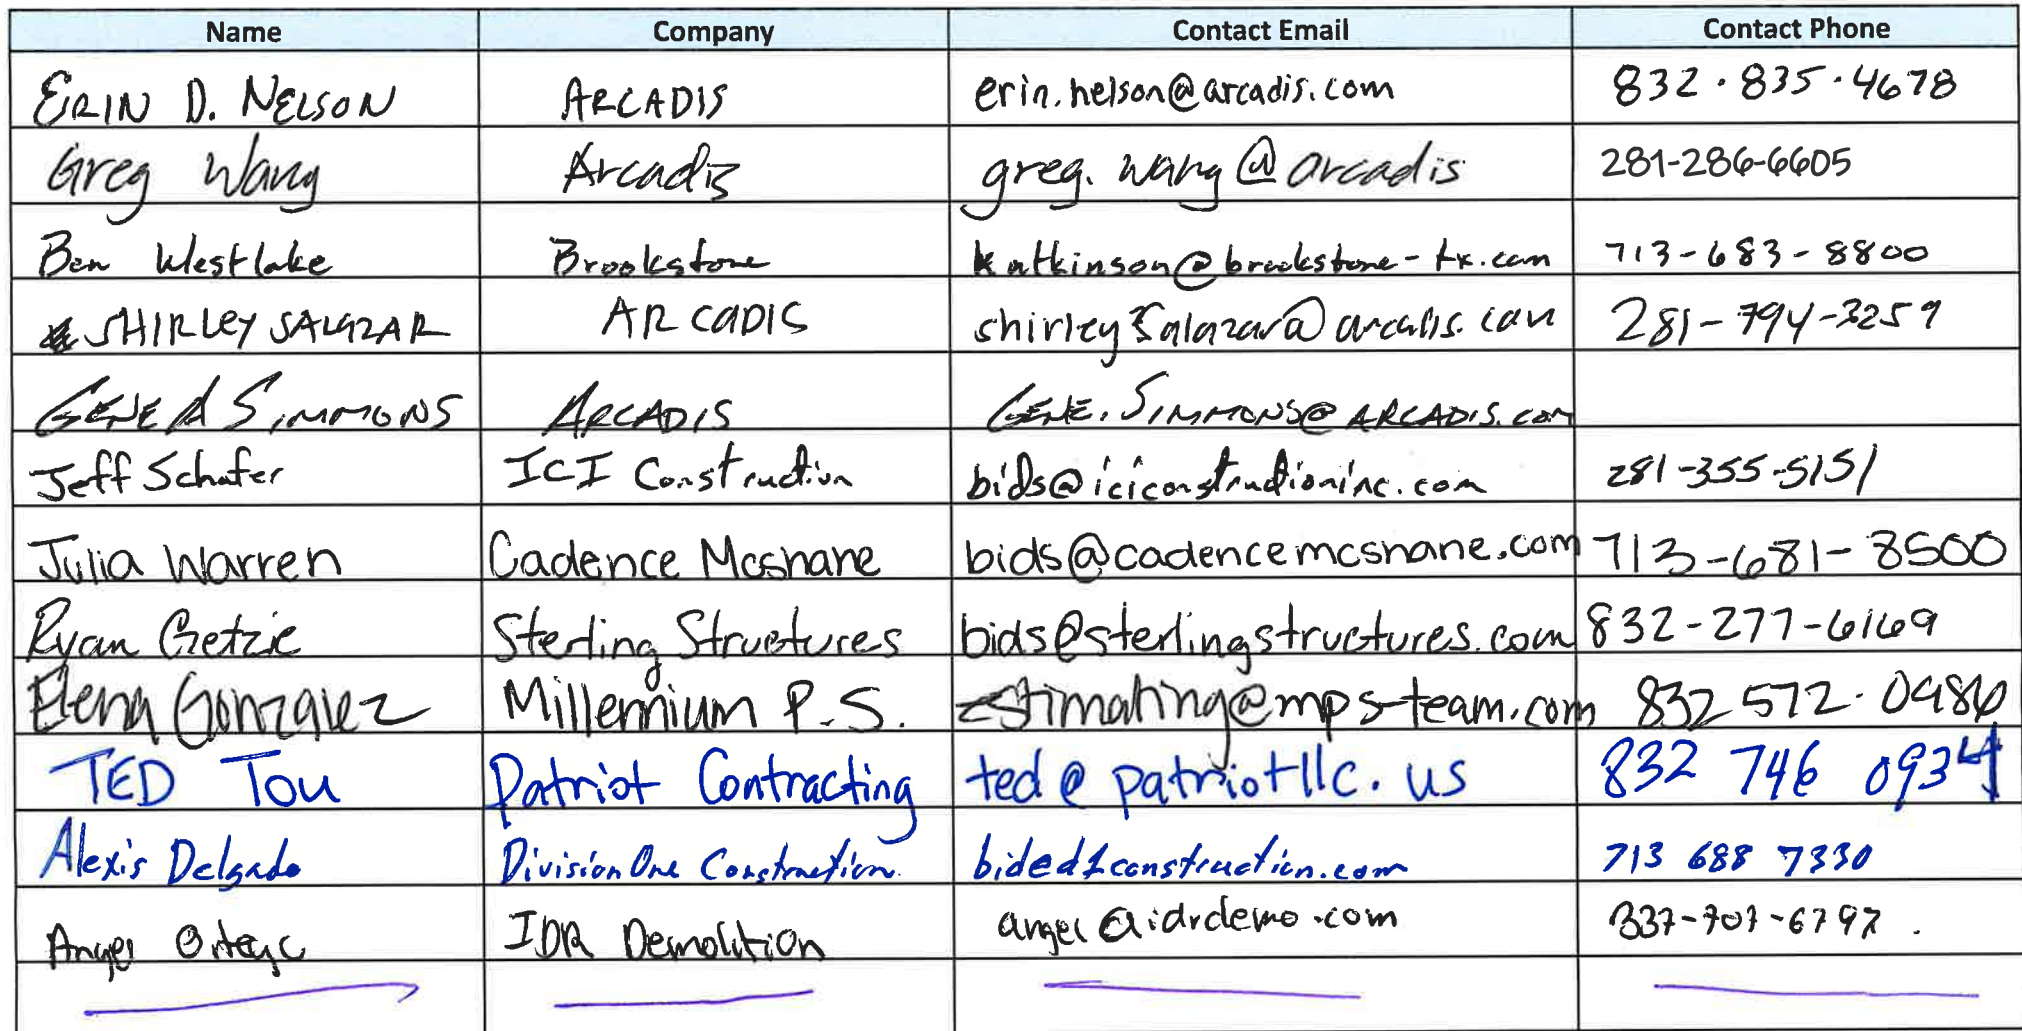 Name Company Contact Email Contact Phone
ERIN D. NELSON ARCADIS erin.nelson@arcadis.com 832·835·4678
Greg Wang Arcadis greg.wang@arcadis 281-286-6605
Ben Westlake Brookstone katkinson@brookstone-tx.com 713-683-8800
SHIRLEY SALAZAR ARCADIS shirley.salazar@arcadis.com 281-794-3259
GENE SIMMONS ARCADIS GENE.SIMMONS@ARCADIS.com
Jeff Schafer ICI Construction bids@iciconstructioninc.com 281-355-5151
Julia Warren Cadence Mcshane bids@cadencemcshane.com 713-681-8500
Ryan Getzie Sterling Structures bids@sterlingstructures.com 832-277-6169
Elena Gonzalez Millennium P.S. estimating@mps-team.com 832 572·0486
TED Tou Patriot Contracting ted@patriotllc.us 832 746 0934
Alexis Delgado Division One Construction bid@d1construction.com 713 688 7330
Angel Ortega IDR Demolition angel@idrdemo.com 337-707-6797